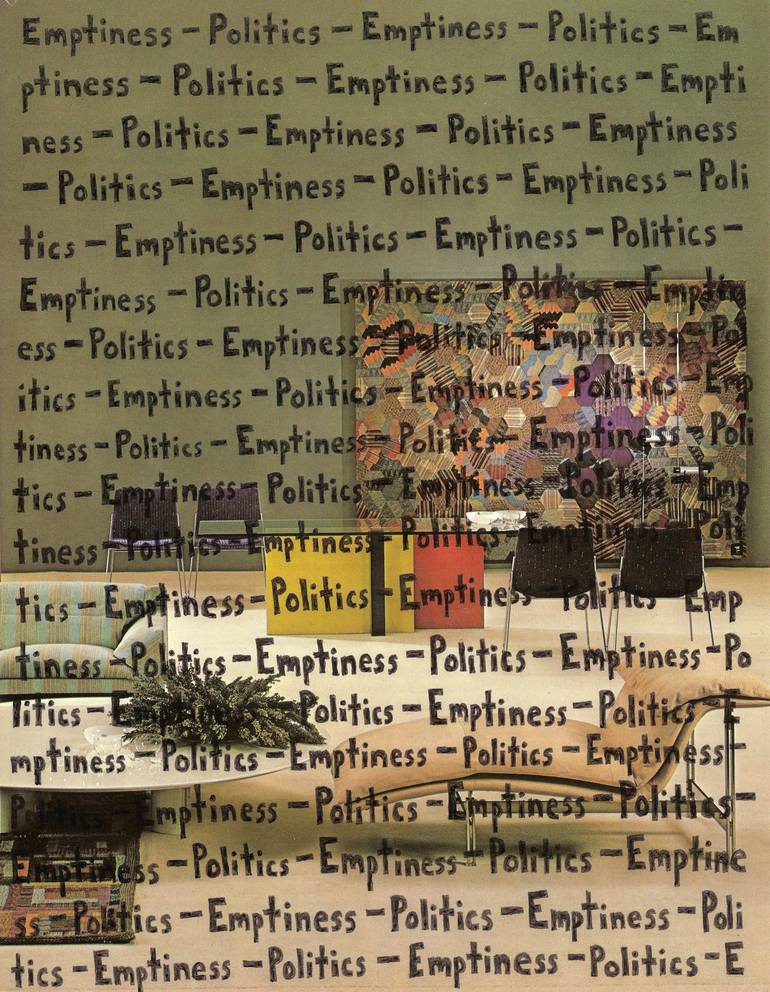 Emptiness - Politics - Emptiness - Politics - Em
ptiness - Politics - Emptiness - Politics - Empti
ness - Politics - Emptiness - Politics - Emptiness
- Politics - Emptiness - Politics - Emptiness - Poli
tics - Emptiness - Politics - Emptiness - Politics -
Emptiness - Politics - Emptiness - Politics - Emptin
ess - Politics - Emptiness - Politics - Emptiness - Pol
itics - Emptiness - Politics - Emptiness - Politics - Emp
tiness - Politics - Emptiness - Politics - Emptiness - Poli
tics - Emptiness - Politics - Emptiness - Politics - Emp
tiness - Politics - Emptiness - Politics - Emptiness - Poli
tics - Emptiness - Politics - Emptiness - Politics - Emp
tiness - Politics - Emptiness - Politics - Emptiness - Po
litics - Emptiness - Politics - Emptiness - Politics - E
mptiness - Politics - Emptiness - Politics - Emptiness -
Politics - Emptiness - Politics - Emptiness - Politics -
Emptiness - Politics - Emptiness - Politics - Emptine
ss - Politics - Emptiness - Politics - Emptiness - Poli
tics - Emptiness - Politics - Emptiness - Politics - E